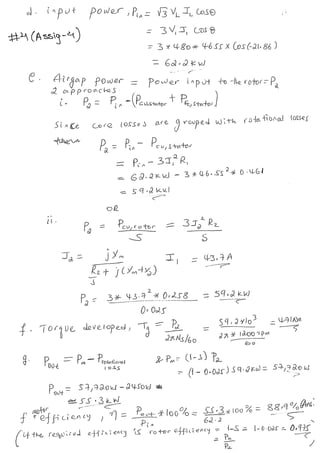 d. input power, Pin = √3 VL IL cosθ
#4 (Assig-4)
= 3 V1 I1 cosθ
= 3 * 480 * 46.55 x cos(-21.86)
= 62.2 kW
e. Airgap power = Power input to the rotor = P2
2 approaches
i. P2 = Pin - (Pcustator + Pfe,stator)
Since core losses are grouped with rotational losses
P2 = Pin - Pcu,stator
= Pin - 3 I1² R1
= 62.2 kW - 3 * 46.55² * 0.461
= 59.2 kW
OR
ii. P2 = Pcu,rotor / S = 3 I2² R2 / S
I2 = jYm / (R2/S + j(Ym+Y2)) I1 = 43.7 A
P2 = 3 * 43.7² * 0.258 / 0.025 = 59.2 kW
f. Torque developed, Tg = P2 / (2πNs/60) = 59.2 x 10³ / (2π * 1200 rpm / 60) = 471 Nm
g. Pout = Pm - Protational loss & Pm = (1-S) P2
= (1-0.025) 59.2 kW = 57,720 W
Pout = 57,720W - 2450W
= 55.3 kW
f motor efficiency, η = Pout / Pin * 100% = 55.3 / 62.2 x 100% = 88.9%
(if the required efficiency is rotor efficiency = 1-S = 1-0.025 = 0.975
= Pm / P2